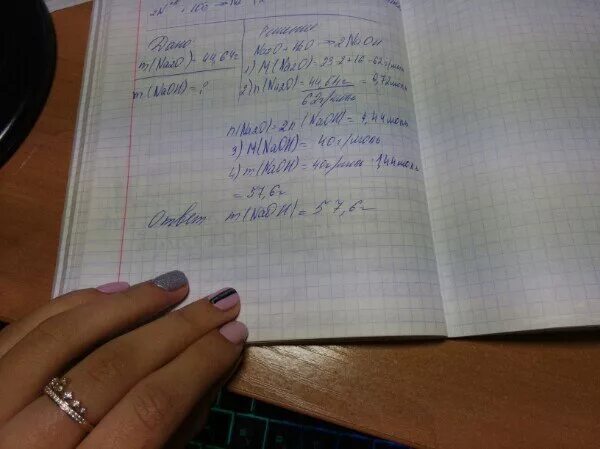 Дано:
m(Na2O)=44,64г
m(NaOH)=?
Решение
Na2O+H2O→2NaOH
1) M(Na2O)=23·2+16=62г/моль
2) n(Na2O)=44,64г/62г/моль=0,72моль
n(Na2O)=2n(NaOH)=1,44моль
3) M(NaOH)=40г/моль
4) m(NaOH)=40г/моль·1,44моль
=57,6г
Ответ m(NaOH)=57,6г